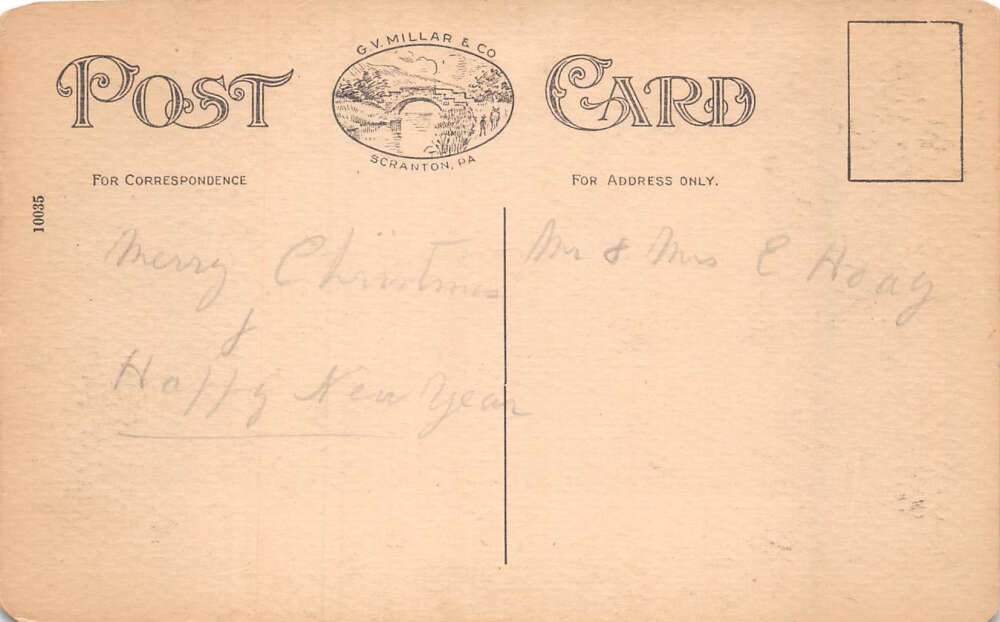 POST CARD
G.V. MILLAR & CO
SCRANTON, PA
FOR CORRESPONDENCE
FOR ADDRESS ONLY.
10035
Merry Christmas
&
Happy New Year
Mr & Mrs E Hoag